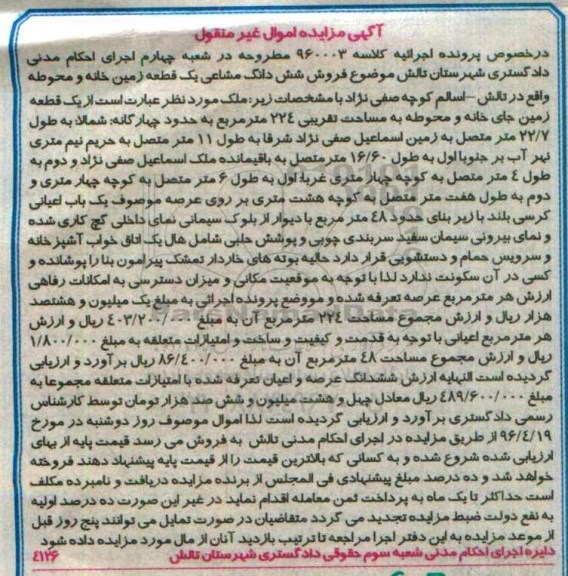 آگهی مزایده اموال غیر منقول
درخصوص پرونده اجرائیه کلاسه ۹۶۰۰۰۳ مطروحه در شعبه چهارم اجرای احکام مدنی
دادگستری شهرستان تالش موضوع فروش شش دانگ مشاعی یک قطعه زمین خانه و محوطه
واقع در تالش – اسالم کوچه صفی نژاد با مشخصات زیر: ملک مورد نظر عبارت است از یک قطعه
زمین جای خانه و محوطه به مساحت تقریبی ۲۲۴ مترمربع به حدود چهارگانه: شمالا به طول
۲۲/۷ متر متصل به زمین اسماعیل صفی نژاد شرقا به طول ۱۱ متر متصل به حریم نیم متری
نهر آب بر جنوبا اول به طول ۱۶/۶۰ مترمتصل به باقیمانده ملک اسماعیل صفی نژاد و دوم به
طول ٤ متر متصل به کوچه چهار متری غربا: اول به طول ۶ متر متصل به کوچه چهار متری و
دوم به طول هفت متر متصل به کوچه هشت متری بر روی عرصه موصوف یک باب اعیانی
کرسی بلند با زیر بنای حدود ٤٨ متر مربع با دیوار از بلوک سیمانی نمای داخلی گچ کاری شده
و نمای بیرونی سیمان سفید سربندی چوبی و پوشش حلبی شامل هال یک اتاق خواب آشپزخانه
و سرویس حمام و دستشویی قرار دارد حالیه بوته های خاردار تمشک پیرامون بنا را پوشانده و
کسی در آن سکونت ندارد لذا با توجه به موقعیت مکانی و میزان دسترسی به امکانات رفاهی
ارزش هر متر مربع عرصه تعرفه شده و موضع پرونده اجرائی به مبلغ یک میلیون و هشتصد
هزار ریال و ارزش مجموع مساحت ۲۲٤ متر مربع آن به مبلغ ٤٠٣/٢٠٠/٠٠٠ ریال و ارزش
هر مترمربع اعیانی با توجه به قدمت و کیفیت و ساخت و امتیازات متعلقه به مبلغ ۱/۸۰۰/۰۰۰
ریال و ارزش مجموع مساحت ٤٨ مترمربع آن به مبلغ ٨٦/٤٠٠/٠٠٠ ریال برآورد و ارزیابی
گردیده است النهایه ارزش ششدانگ عرصه و اعیان تعرفه شده با امتیازات متعلقه مجموعا به
مبلغ ٤٨٩/٦٠٠/٠٠٠ ریال معادل چهل و هشت میلیون و شش صد هزار تومان توسط کارشناس
رسمی دادگستری برآورد و ارزیابی گردیده است لذا اموال موصوف روز دوشنبه در مورخ
۹۶/۴/۱۹ از طریق مزایده در اجرای احکام مدنی تالش به فروش می رسد قیمت پایه از بهای
ارزیابی شده شروع شده و به کسانی که بالاترین قیمت را از قیمت پایه پیشنهاد دهند فروخته
خواهد شد و ده درصد مبلغ پیشنهادی فی المجلس از برنده مزایده دریافت و نامبرده مکلف
است حداکثر تا یک ماه به پرداخت ثمن معامله اقدام نماید در غیر این صورت ده درصد اولیه
به نفع دولت ضبط مزایده تجدید می گردد متقاضیان در صورت تمایل می توانند پنج روز قبل
از موعد مزایده به این دفتر اجرا مراجعه تا ترتیب بازدید آنان از مال مورد مزایده داده شود
دایره اجرای احکام مدنی شعبه سوم حقوقی دادگستری شهرستان تالش ۴۱۲۶